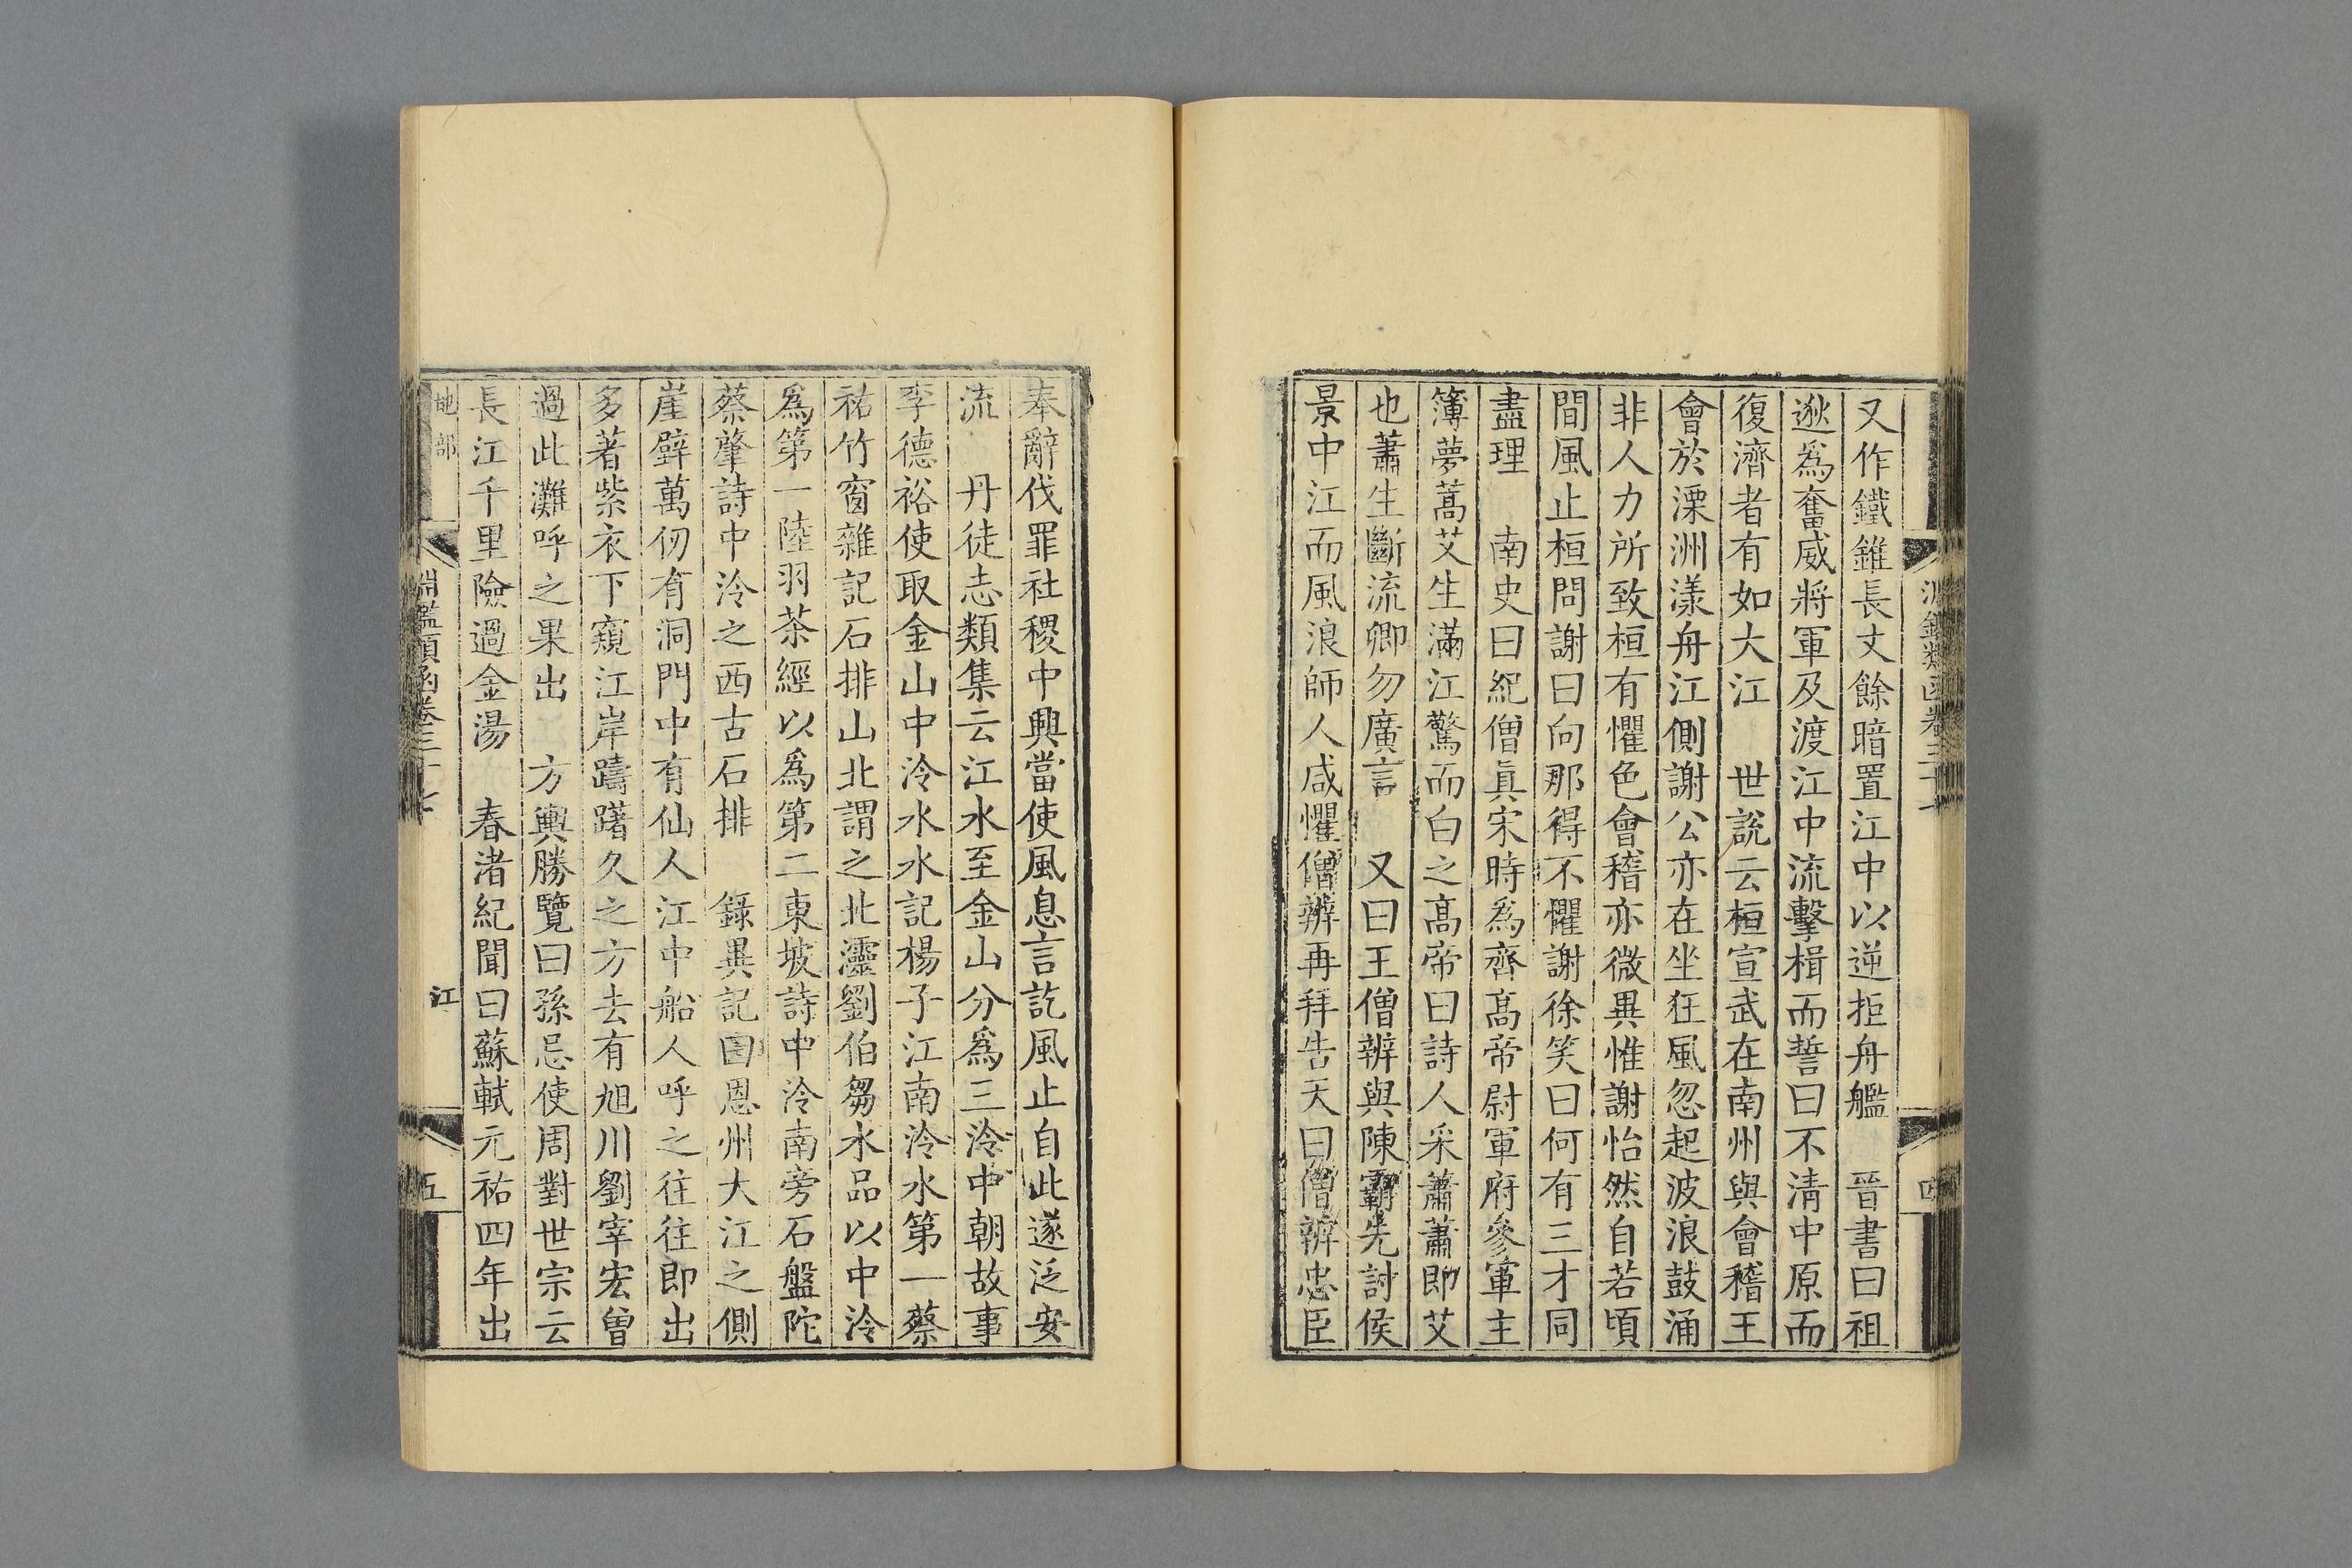 又作鐵錐長丈餘暗置江中以逆拒舟艦　晉書曰祖
逖爲奮威將軍及渡江中流擊楫而誓曰不淸中原而
復濟者有如大江　世說云桓宣武在南州與會稽王
會於溧洲漾舟江側謝公亦在坐狂風忽起波浪鼓涌
非人力所致桓有懼色會稽亦微異惟謝怡然自若頃
間風止桓問謝曰向那得不懼謝徐笑曰何有三才同
盡理　南史曰紀僧眞宋時爲齊高帝尉軍府參軍主
簿夢蒿艾生滿江驚而白之高帝曰詩人采蕭蕭即艾
也蕭生斷流卿勿廣言　又曰王僧辨與陳霸先討侯
景中江而風浪師人咸懼僧辨再拜告天曰僧辨忠臣
奉辭伐罪社稷中興當使風息言訖風止自此遂泛安
流　丹徒志類集云江水至金山分爲三泠中朝故事
李德裕使取金山中泠水水記楊子江南泠水第一蔡
祐竹窗雜記石排山北謂之北㶟劉伯芻水品以中泠
爲第一陸羽茶經以爲第二東坡詩中泠南旁石盤陀
蔡肇詩中泠之西古石排　錄異記囯恩州大江之側
崖壁萬仞有洞門中有仙人江中船人呼之往往即出
多著紫衣下窺江岸躊躇久之方去有旭川劉宰宏曾
過此灘呼之果出　方輿勝覽曰孫忌使周對世宗云
長江千里險過金湯　春渚紀聞曰蘇軾元祐四年出
地部
淵鑑類函卷三十七
江
五